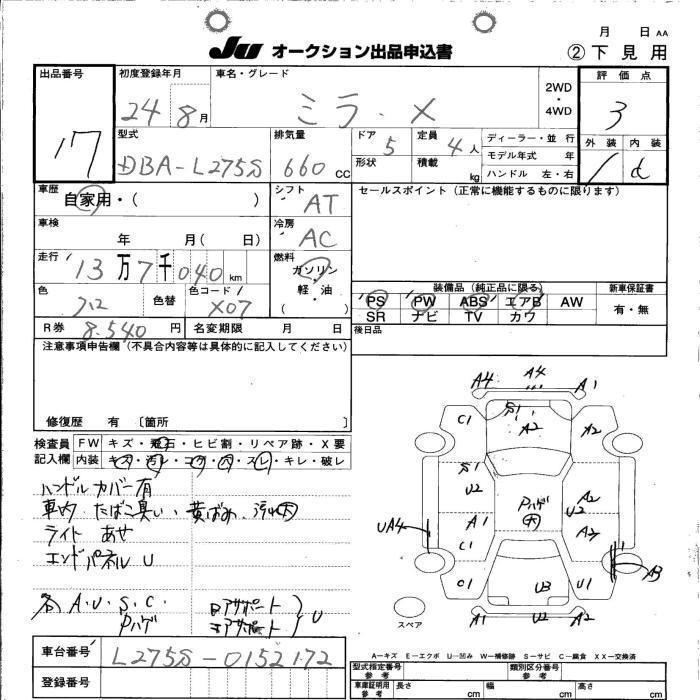 月 日 AA
JU オークション出品申込書
② 下見用
出品番号 17
初度登録年月 24 8月
車名・グレード ミラ・X
2WD・4WD
評価点 3
外装 内装 d
型式 DBA-L275S
排気量 660 CC
ドア 5
形状
定員 4人
積載 kg
ディーラー・並行
モデル年式 年
ハンドル 左・右
車歴 自家用・( )
シフト AT
セールスポイント(正常に機能するものに限ります)
車検 年 月( 日)
冷房 AC
走行 13万7千040km
燃料 ガソリン・軽・油 ( )
色
色替
色コード X07
装備品(純正品に限る)
新車保証書
PS PW ABS エアB AW
有・無
SR ナビ TV カワ
R券 8.540円
名変期限 月 日
後日品
注意事項申告欄(不具合内容等は具体的に記入してください)
修復歴 有 〔箇所 〕
検査員記入欄
FW キズ・飛石・ヒビ割・リペア跡・X要
内装 キズ・汚レ・コゲ・穴・スレ・キレ・破レ
ハンドルカバー有
車内 たばこ臭い、黄ばみ、汚れ大
ライト あせ
エンドパネル U
各 A.U.S.C. Pハゲ
ロアサポート
コアサポート
U
A4 A4 A1
C1 S1 A2 A2
S1
U2 Pハゲ 大 A2
U2
UA4 A1 A2
C1
A3
C1 U3 U1
A1 U2 A2
スペア
A-キズ E-エクボ U-凹み W-補修跡 S-サビ C-腐食 XX-交換済
車台番号 L275S-0152172
登録番号
型式指定番号 参考
類別区分番号 参考
車庫証明用 参考
長さ cm 幅 cm 高さ cm